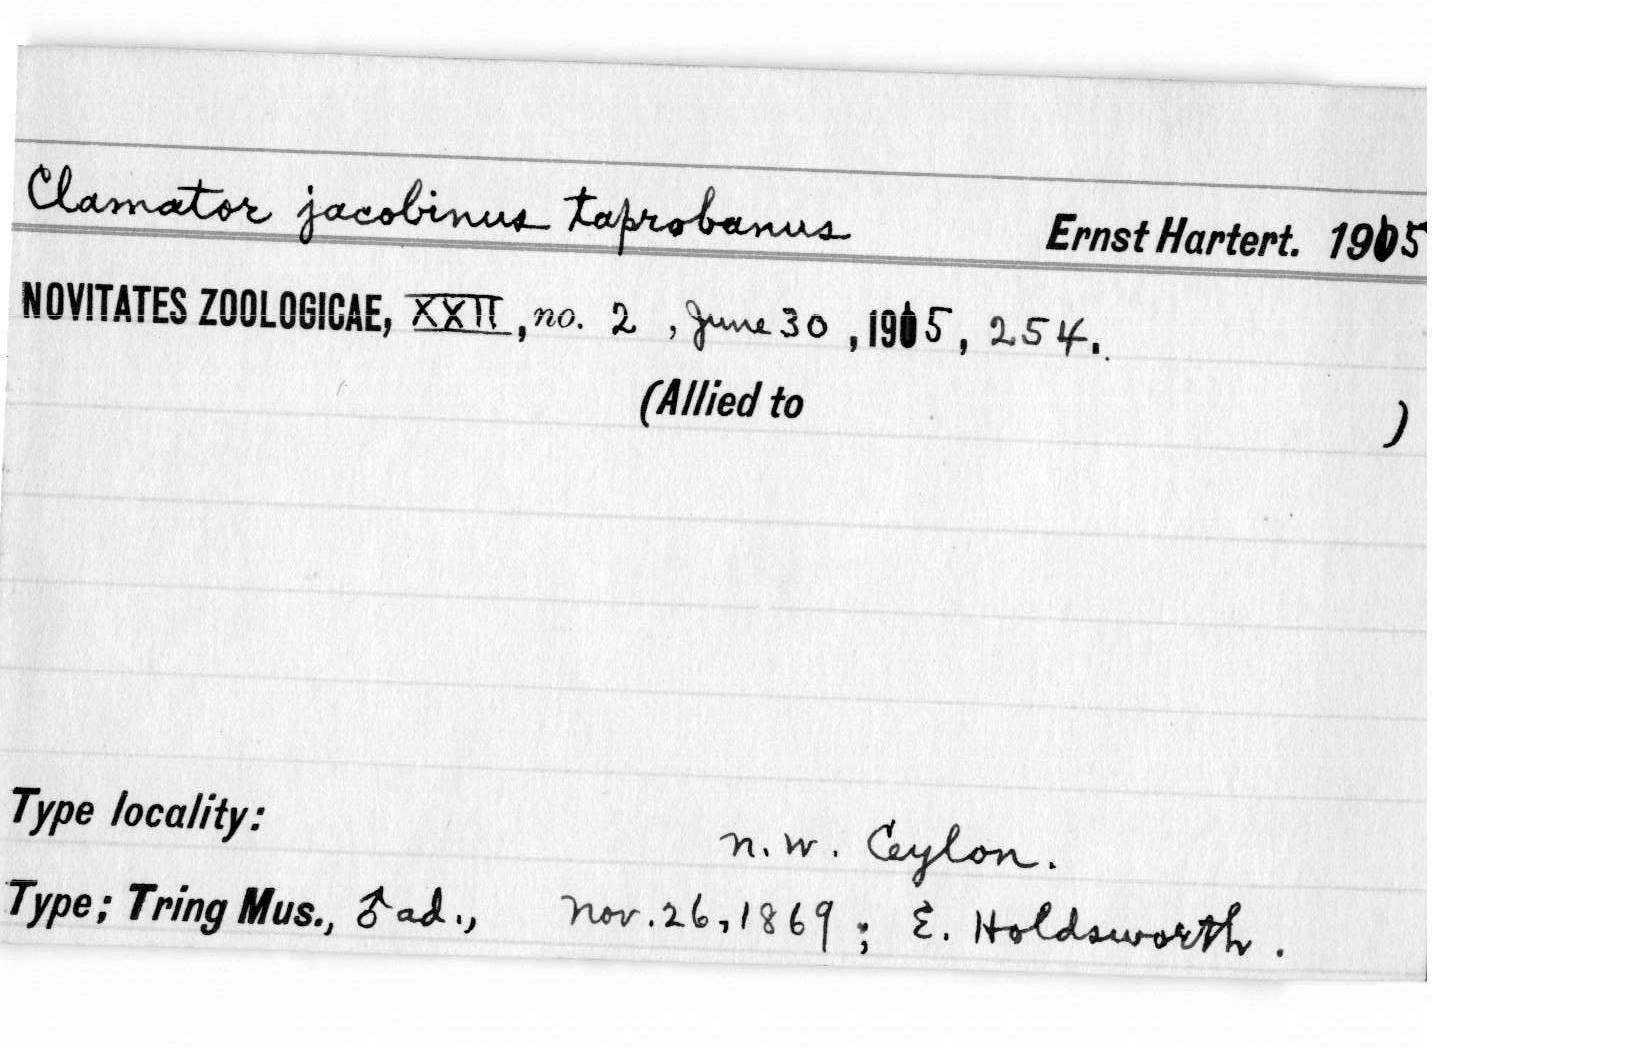 Clamator jacobinus taprobanus Ernst Hartert. 1915
NOVITATES ZOOLOGICAE, XXII, no. 2, June 30, 1915, 254.
(Allied to )
Type locality: N.W. Ceylon.
Type; Tring Mus., ♂ ad., Nov. 26, 1869; E. Holdsworth.